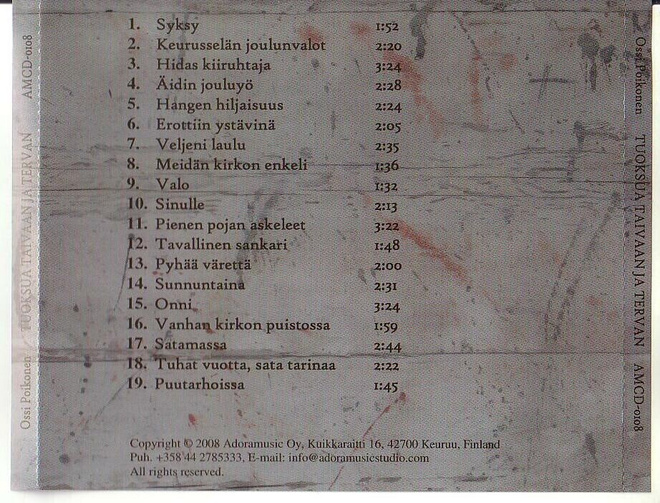 1. Syksy 1:52
2. Keurusselän joulunvalot 2:20
3. Hidas kiiruhtaja 3:24
4. Äidin jouluyö 2:28
5. Hangen hiljaisuus 2:24
6. Erottiin ystävinä 2:05
7. Veljeni laulu 2:35
8. Meidän kirkon enkeli 1:36
9. Valo 1:32
10. Sinulle 2:13
11. Pienen pojan askeleet 3:22
12. Tavallinen sankari 1:48
13. Pyhää värettä 2:00
14. Sunnuntaina 2:31
15. Onni 3:24
16. Vanhan kirkon puistossa 1:59
17. Satamassa 2:44
18. Tuhat vuotta, sata tarinaa 2:22
19. Puutarhoissa 1:45
Copyright © 2008 Adoramusic Oy, Kuikkaraitti 16, 42700 Keuruu, Finland
Puh. +358 44 2785333, E-mail: info@adoramusicstudio.com
All rights reserved.
Ossi Poikonen TUOKSUA TAIVAAN JA TERVAN AMCD-0108
Ossi Poikonen TUOKSUA TAIVAAN JA TERVAN AMCD-0108